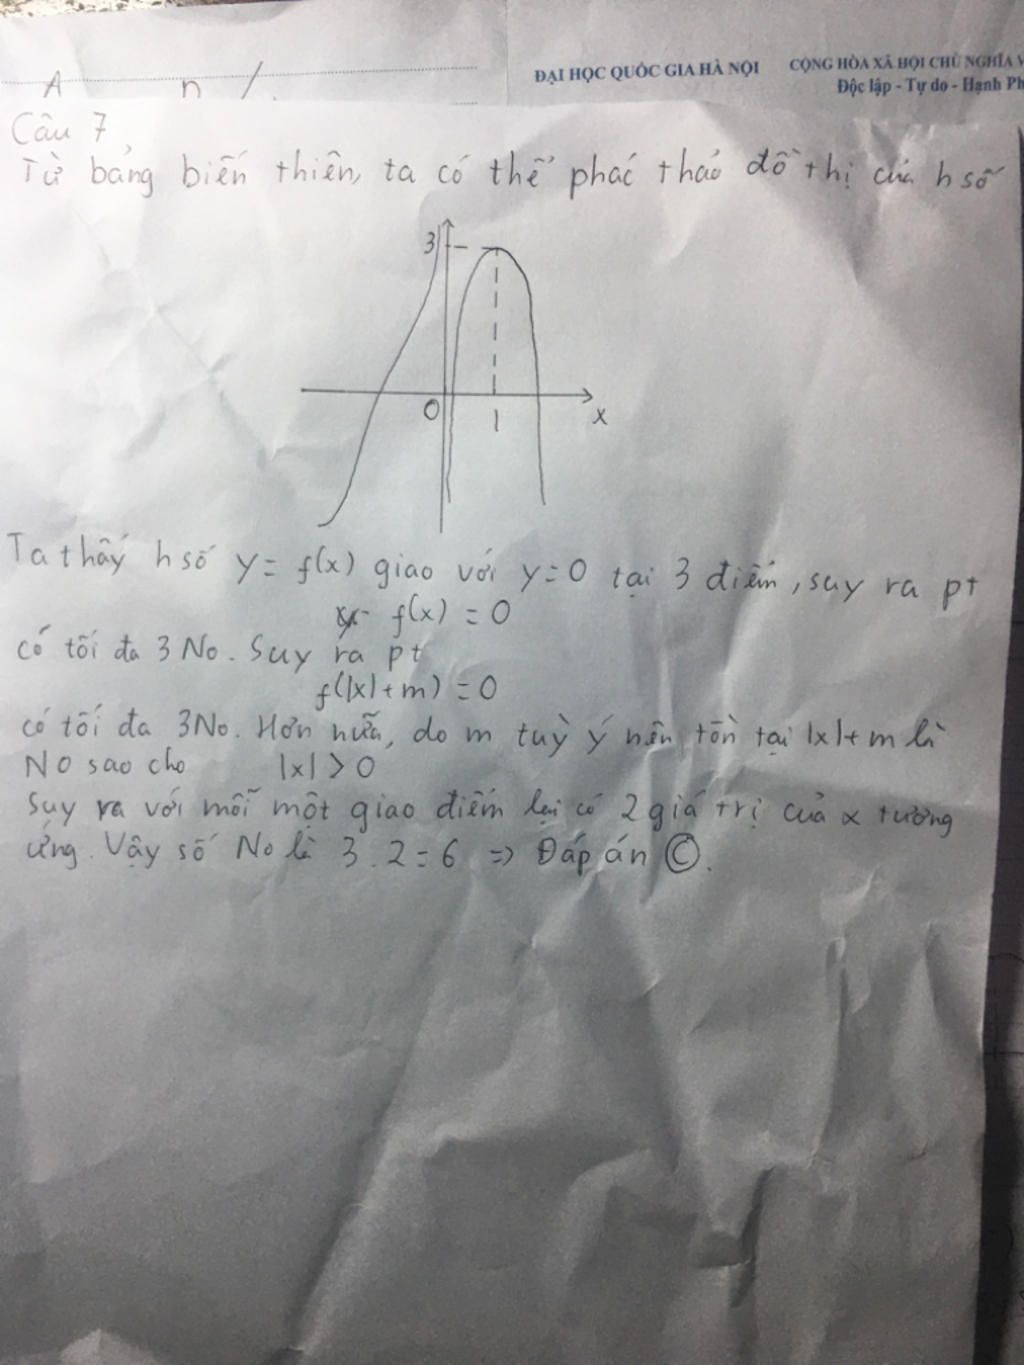 ĐẠI HỌC QUỐC GIA HÀ NỘI
CỘNG HÒA XÃ HỘI CHỦ NGHĨA V
Độc lập - Tự do - Hạnh Ph
A n /.
Câu 7
Từ bảng biến thiên, ta có thể phác thảo đồ thị của h số
3
O 1 x
Ta thấy h số y = f(x) giao với y = 0 tại 3 điểm, suy ra pt
f(x) = 0
có tối đa 3 No. Suy ra pt
f(|x| + m) = 0
có tối đa 3No. Hơn nữa, do m tuỳ ý nên tồn tại |x| + m là
No sao cho |x| > 0
Suy ra với mỗi một giao điểm lại có 2 giá trị của x tương
ứng. Vậy số No là 3 . 2 = 6 => Đáp án C.